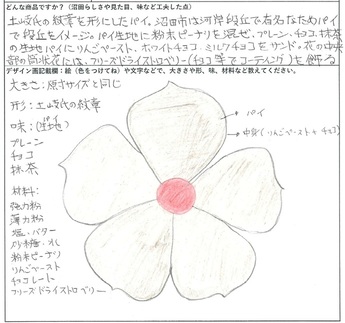 どんな商品ですか？（沼田らしさや見た目、味など工夫した点）
土岐氏の紋章を形にしたパイ。沼田市は河岸段丘で有名なためパイ
で段丘をイメージ。パイ生地に粉末ピーナリを混ぜ、プレーン、チョコ、抹茶
の生地パイにりんごペースト、ホワイトチョコ、ミルクチョコをサンド。花の中央
部の筒状花には、フリーズドライストロベリー(チョコ等でコーティング)を飾る
デザイン画記載欄：絵（色をつけてね）や文字などで、大きさや形、味、材料など教えてください。
大きさ：原寸サイズと同じ
形：土岐氏の紋章
パイ
味：(生地)
中身(りんごペースト+チョコ)
プレーン
チョコ
抹茶
材料：
強力粉
薄力粉
塩・バター
砂糖・水
粉末ピーナリ
りんごペースト
チョコレート
フリーズドライストロベリー